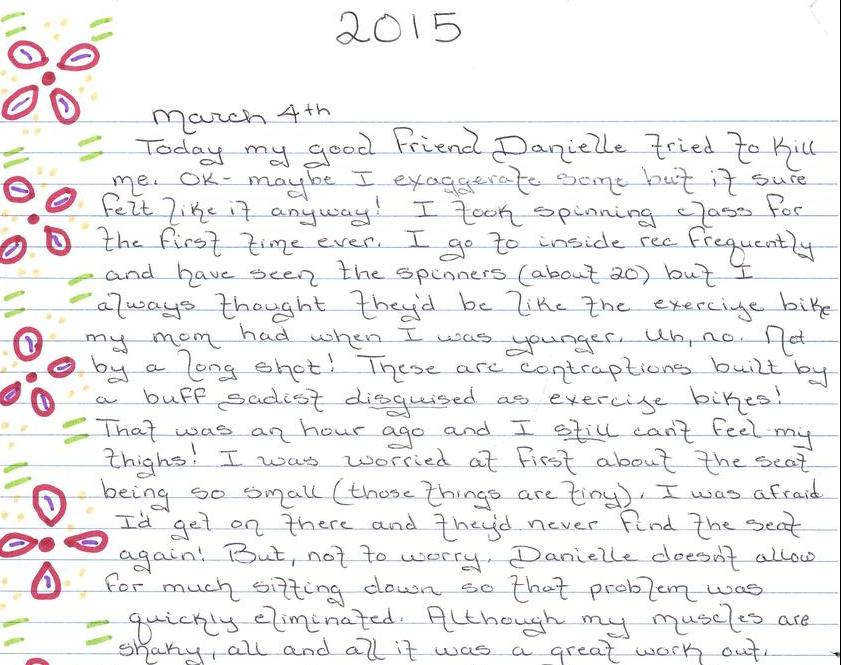 2015
March 4th
Today my good friend Danielle tried to kill
me. OK- maybe I exaggerate some but it sure
felt like it anyway! I took spinning class for
the first time ever. I go to inside rec frequently
and have seen the spinners (about 20) but I
always thought they'd be like the exercize bike
my mom had when I was younger. Uh, no. Not
by a long shot! These are contraptions built by
a buff sadist disguised as exercize bikes!
That was an hour ago and I still can't feel my
thighs! I was worried at first about the seat
being so small (those things are tiny). I was afraid
I'd get on there and they'd never find the seat
again! But, not to worry. Danielle doesn't allow
for much sitting down so that problem was
quickly eliminated. Although my muscles are
shaky, all and all it was a great work out.